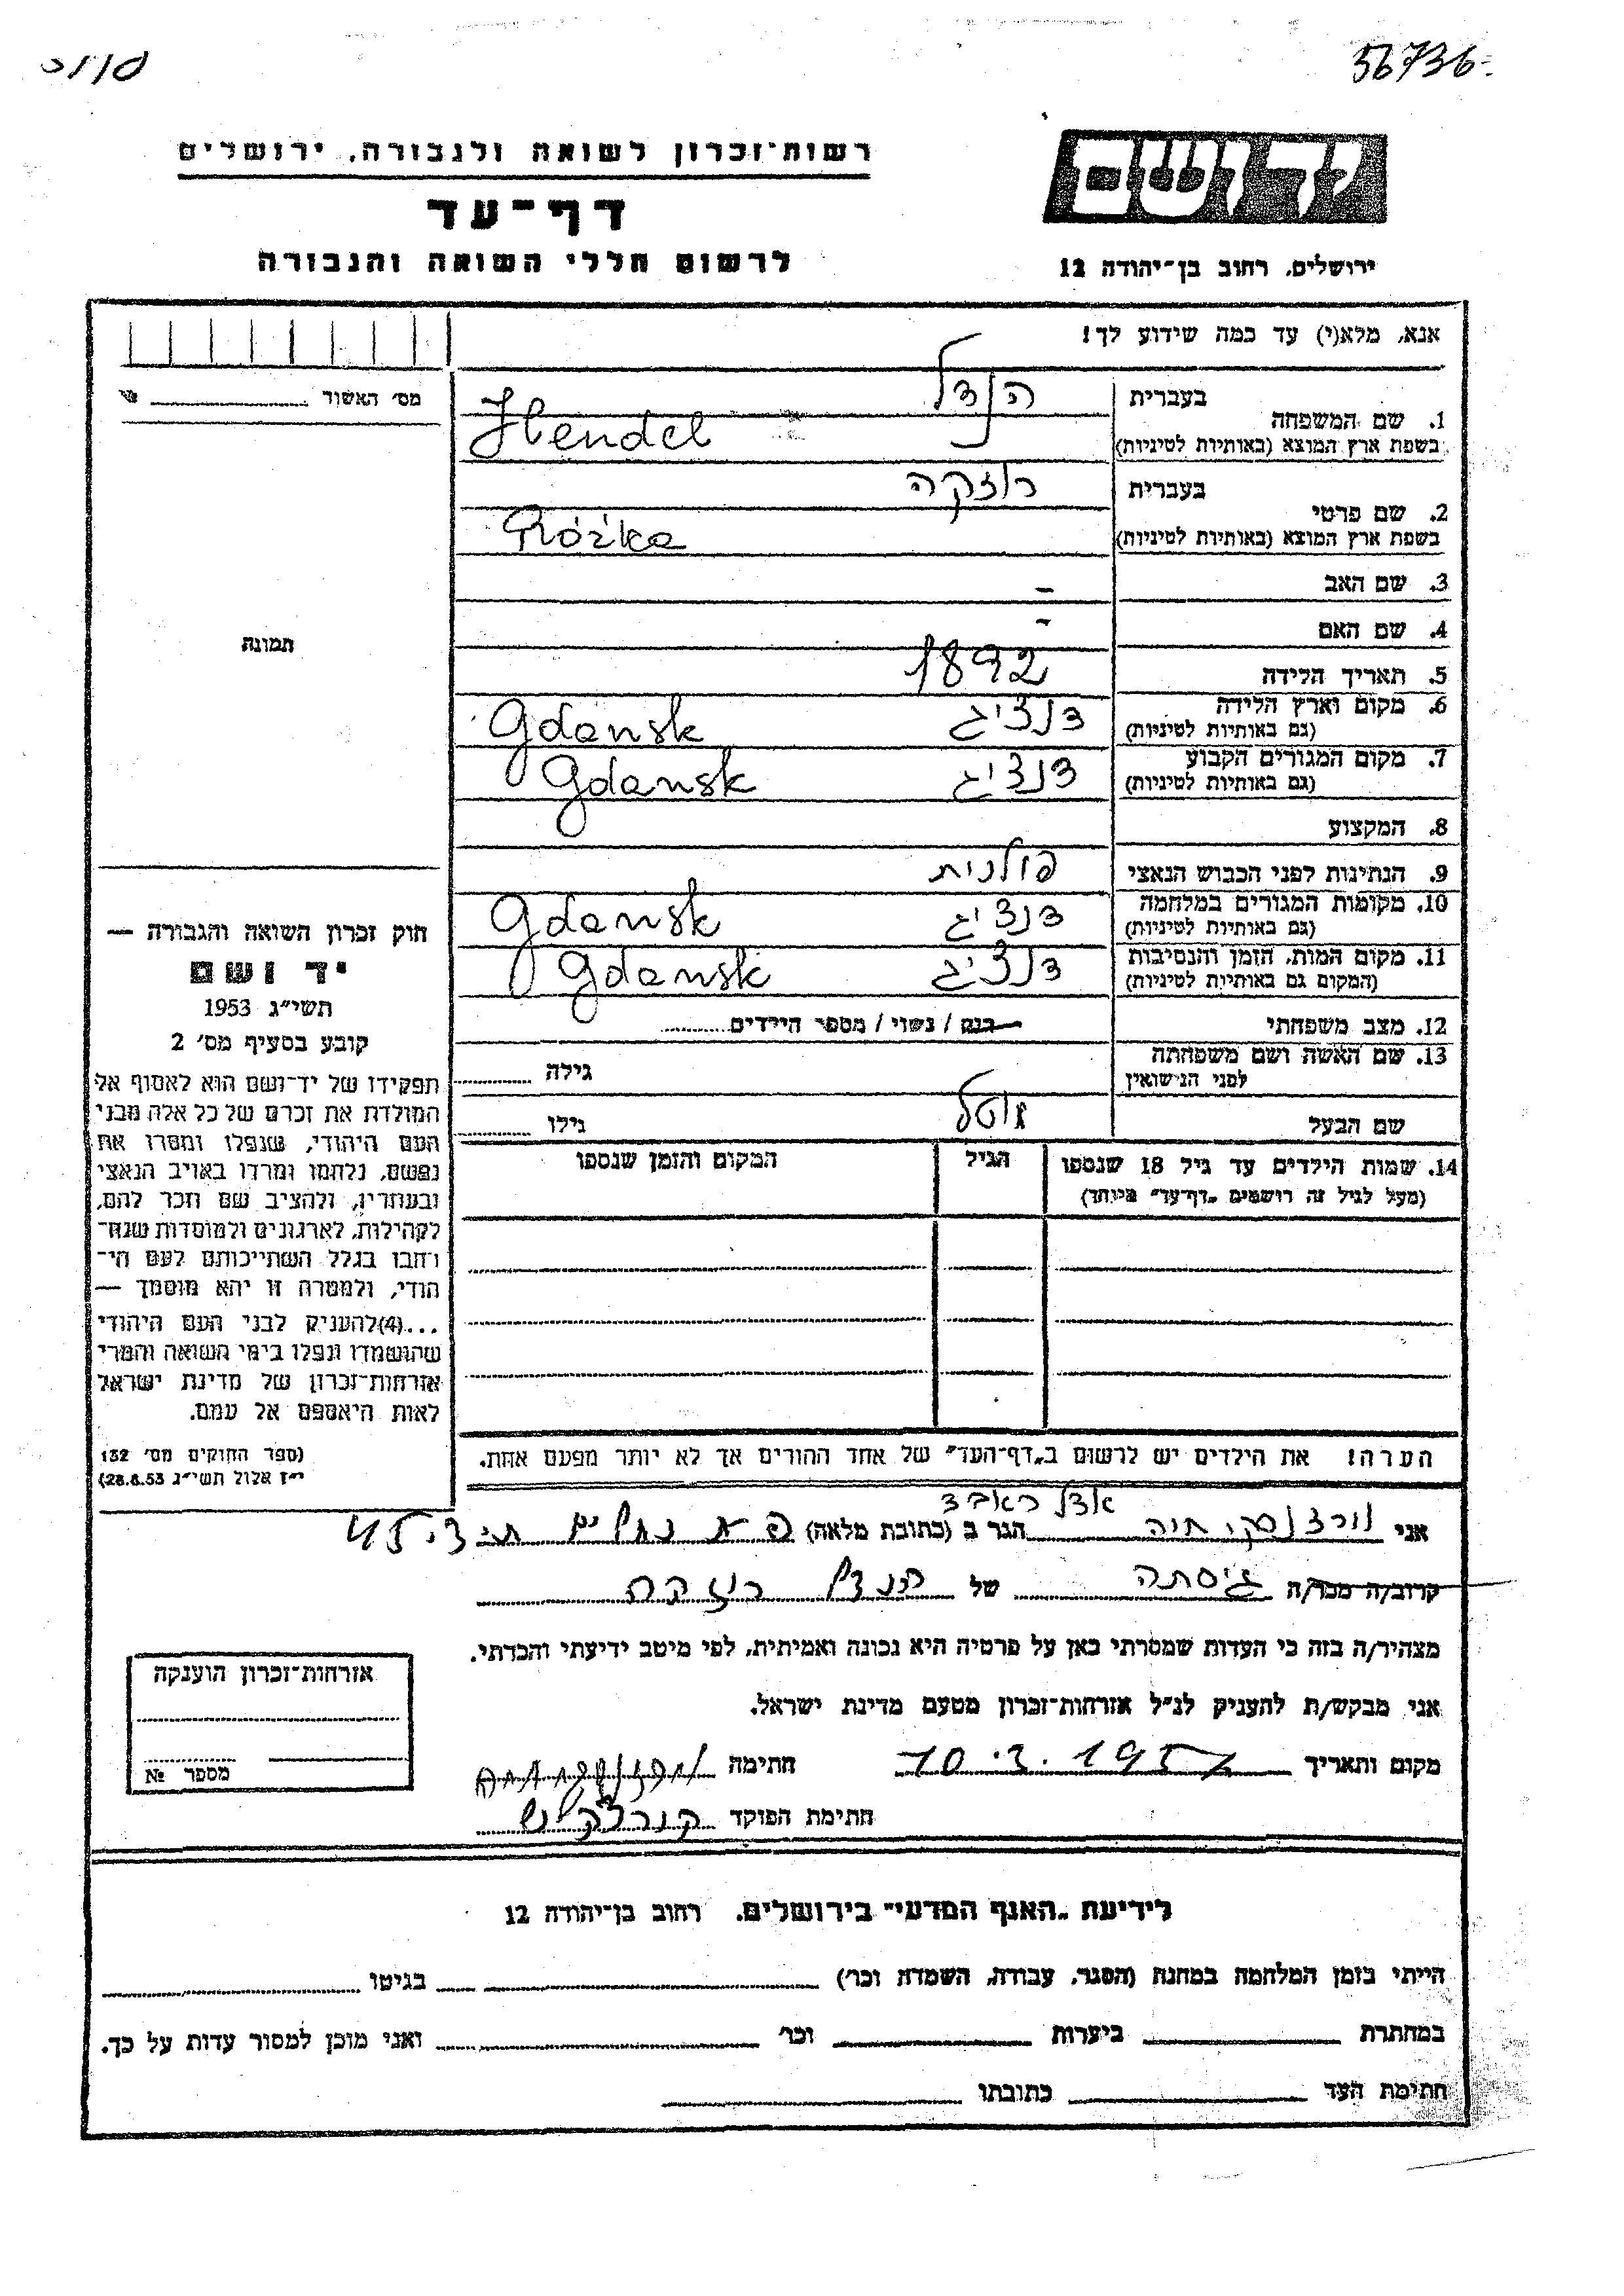 56736
רשות־זכרון לשואה ולגבורה, ירושלים
יד ושם
דף־עד
ירושלים, רחוב בן־יהודה 12
לרשום חללי השואה והגבורה
אנא, מלא(י) עד כמה שידוע לך!
מס׳ האשור
בעברית הנדל
1. שם המשפחה
בשפת ארץ המוצא (באותיות לטיניות) Hendel
בעברית רוזקה
2. שם פרטי
בשפת ארץ המוצא (באותיות לטיניות) Różka
3. שם האב -
4. שם האם -
תמונה
5. תאריך הלידה 1892
6. מקום וארץ הלידה דנציג Gdansk
(גם באותיות לטיניות)
7. מקום המגורים הקבוע דנציג Gdansk
(גם באותיות לטיניות)
8. המקצוע
9. הנתינות לפני הכבוש הנאצי פולנית
10. מקומות המגורים במלחמה דנציג Gdansk
(גם באותיות לטיניות)
11. מקום המות, הזמן והנסיבות דנציג Gdansk
(המקום גם באותיות לטיניות)
12. מצב משפחתי רוק / נשוי / מספר הילדים
13. שם האשה ושם משפחתה גילה
לפני הנישואין
שם הבעל מוטל גילו
14. שמות הילדים עד גיל 18 שנספו הגיל המקום והזמן שנספו
(מעל לגיל זה רושמים „דף־עד” מיוחד)
חוק זכרון השואה והגבורה —
יד ושם
תשי״ג 1953
קובע בסעיף מס׳ 2
תפקידו של יד־ושם הוא לאסוף אל
המולדת את זכרם של כל אלה מבני
העם היהודי, שנפלו ומסרו את
נפשם, נלחמו ומרדו באויב הנאצי
ובעוזריו, ולהציב שם וזכר להם,
לקהילות, לארגונים ולמוסדות שנח־
רחבו בגלל השתייכותם לעם הי־
הודי, ולמטרה זו יהא מוסמך —
...(4) להעניק לבני העם היהודי
שהושמדו ונפלו בימי השואה והמרי
אזרחות־זכרון של מדינת ישראל
לאות היאספם אל עמם.
(ספר החוקים מס׳ 132
י״ז אלול תשי״ג 28.8.53)
הערה! את הילדים יש לרשום ב„דף־העד” של אחד ההורים אך לא יותר מפעם אחת.
אני חיה הגר ב (כתובת מלאה)
קרוב/ה מכר/ה גיסתה של הנדל רוזקה
מצהיר/ה בזה כי העדות שמסרתי כאן על פרטיה היא נכונה ואמיתית, לפי מיטב ידיעתי והכרתי.
אני מבקש/ת להעניק לנ״ל אזרחות־זכרון מטעם מדינת ישראל.
מקום ותאריך חתימה
חתימת הפוקד
אזרחות־זכרון הוענקה
מספר №
לידיעת „האגף המדעי” בירושלים, רחוב בן־יהודה 12
הייתי בזמן המלחמה במחנה (הסגר, עבודה, השמדה וכו׳) בגיטו
במחתרת ביערות וכו׳ ואני מוכן למסור עדות על כך.
חתימת העד כתובתו